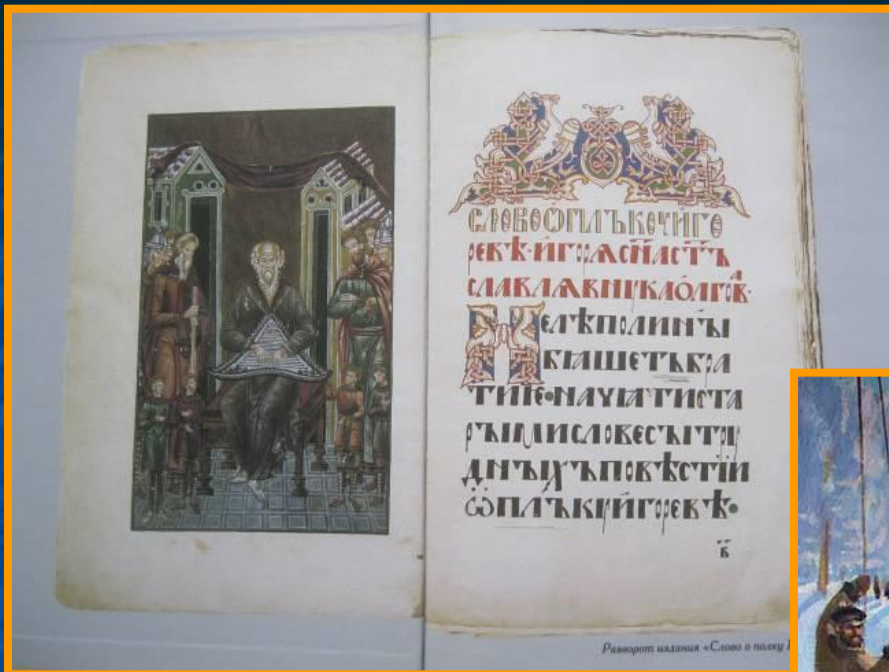 СЛОВОѾПЛЪКОУИГО
РЕВѢ·ИГОРѦСН҃АСТѢ
СЛАВЛѦВНꙊКАОЛГОВА·
НЕЛѢПОЛИНЫ
БꙖШЕТЬБРА
ТИѤ·НАЧꙖТИСТА
РЫМИСЛОВЕСЫТРꙊ
ДНЫХЪПОВѢСТІИ
ѾПЛЪКꙊИГОРЕВѢ·
в҃
Разворот издания «Слово о полку